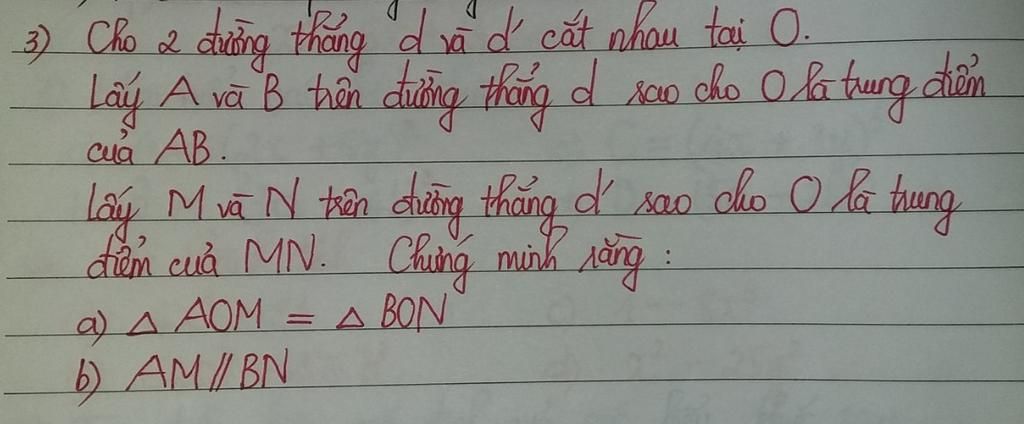 3) Cho 2 đường thẳng d và d' cắt nhau tại O.
Lấy A và B trên đường thẳng d sao cho O là trung điểm
của AB.
Lấy M và N trên đường thẳng d' sao cho O là trung
điểm của MN. Chứng minh rằng :
a) △ AOM = △ BON
b) AM // BN